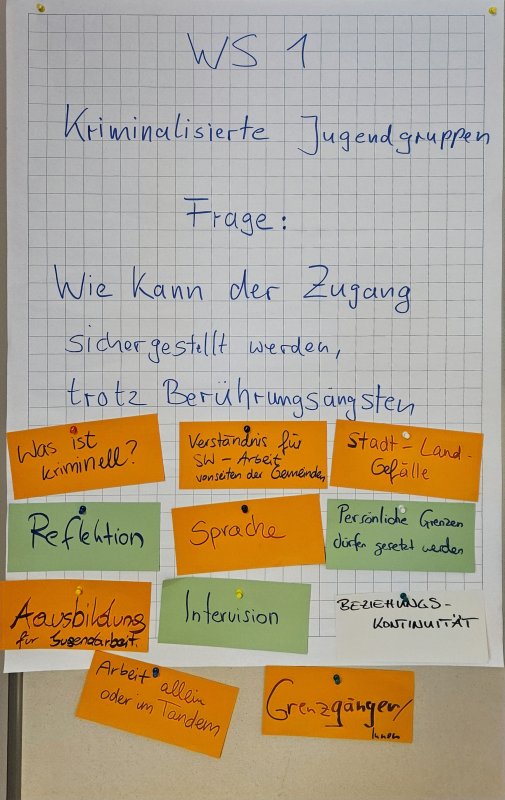 WS 1
Kriminalisierte Jugendgruppen
Frage:
Wie kann der Zugang
sichergestellt werden,
trotz Berührungsängsten
Was ist
kriminell?
Verständnis für
SW - Arbeit
vonseiten der Gemeinden
Stadt - Land -
Gefälle
Reflektion
Sprache
Persönliche Grenzen
dürfen gesetzt werden
Aausbildung
für Jugendarbeit.
Intervision
BEZIEHUNGS-
KONTINUITÄT
Arbeit allein
oder im Tandem
Grenzgänger/
Innen